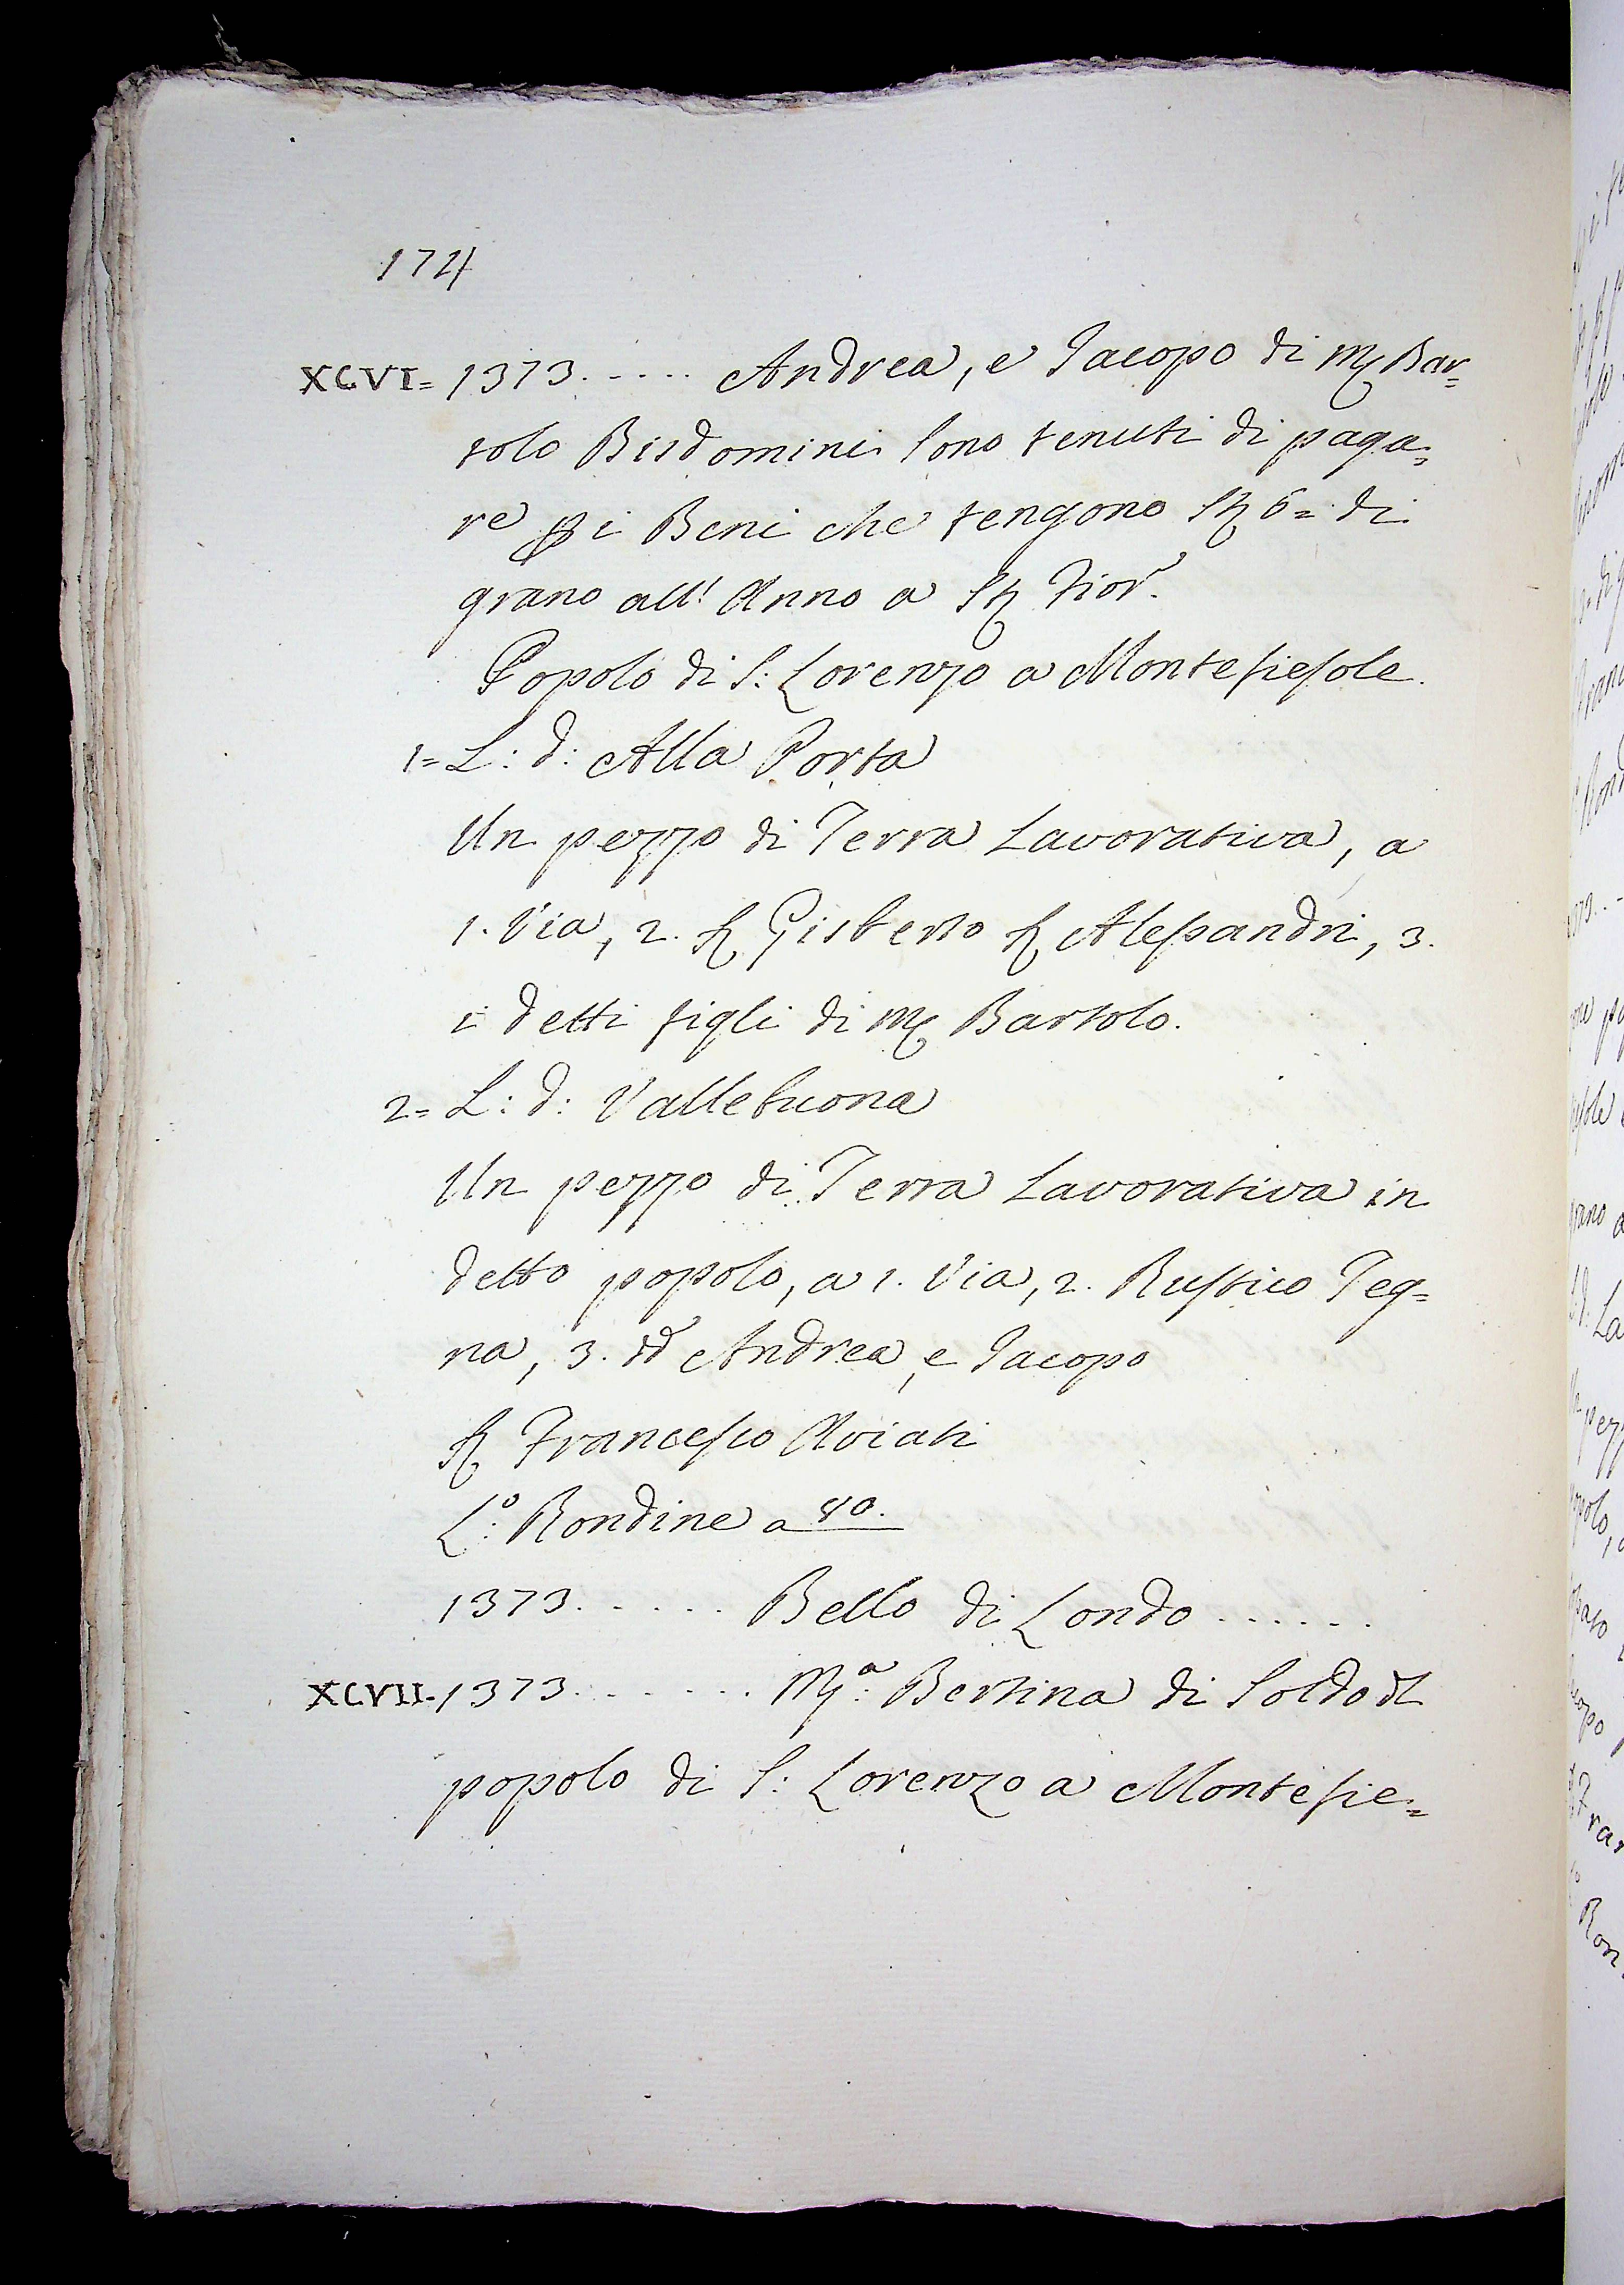 174
XCVI= 1373. .... Andrea, e Jacopo di Mr Bar=
tolo Bisdomini sono tenuti di paga=
re p i Beni che tengono St 6= di
grano all' Anno a St Fior.
Popolo di S: Lorenzo a Montefiesole.
1= L: d: Alla Porta
Un pezzo di Terra Lavorativa, a
1. Via, 2. Sr Gisberto Sr Alessandri, 3.
i detti figli di Mr Bartolo.
2= L: d: Vallebuona
Un pezzo di Terra Lavorativa in
detto popolo, a 1. Via, 2. Rustico Teg=
na, 3. dd Andrea, e Jacopo
Sr Francesco Aviati
L:o Rondine a 80.
1373. .... Bello di Londo ......
XCVII. 1373. ...... Ma: Bertina di Soldo dl
popolo di S: Lorenzo a Montefie=